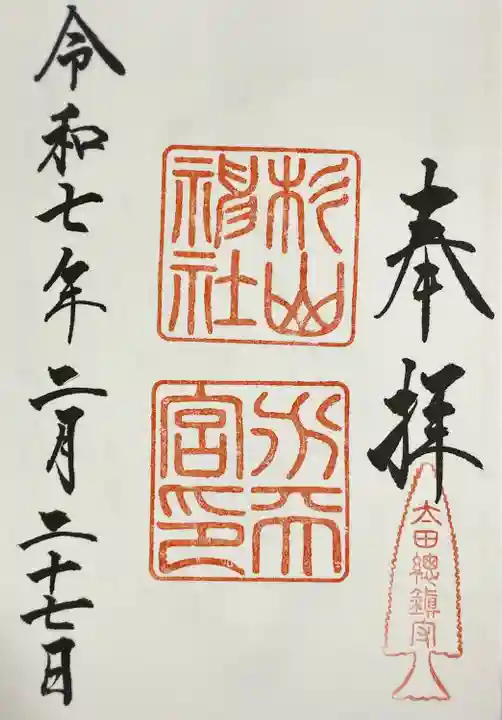 奉拝
太田總鎮守
杉山
神社
水天
宮印
令和七年二月二十七日